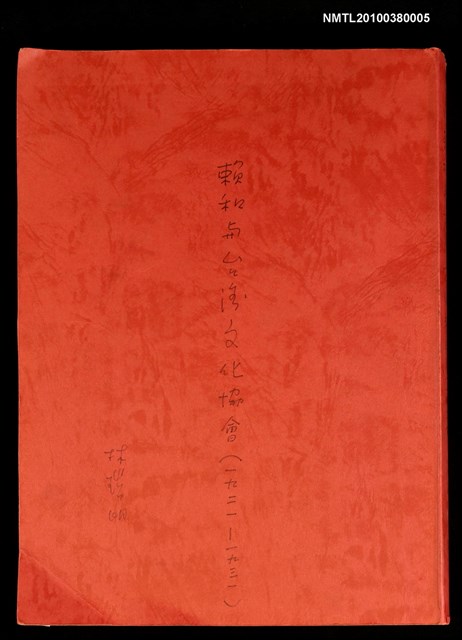 NMTL20100380005
賴和与台湾文化協會(一九二一—一九三一)
林瑞明